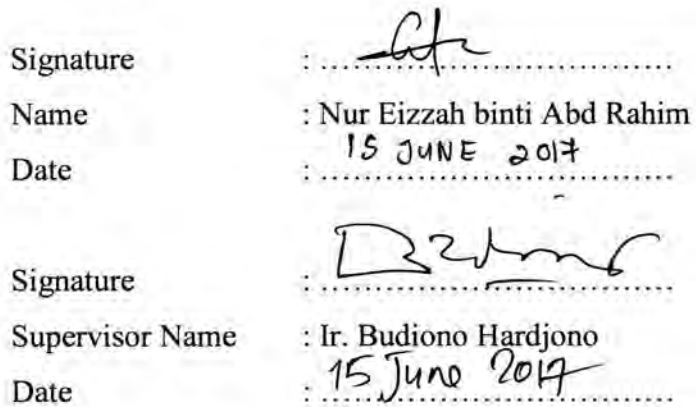 Signature : ..............................
Name : Nur Eizzah binti Abd Rahim
Date : 15 JUNE 2017
Signature : ..............................
Supervisor Name : Ir. Budiono Hardjono
Date : 15 June 2017